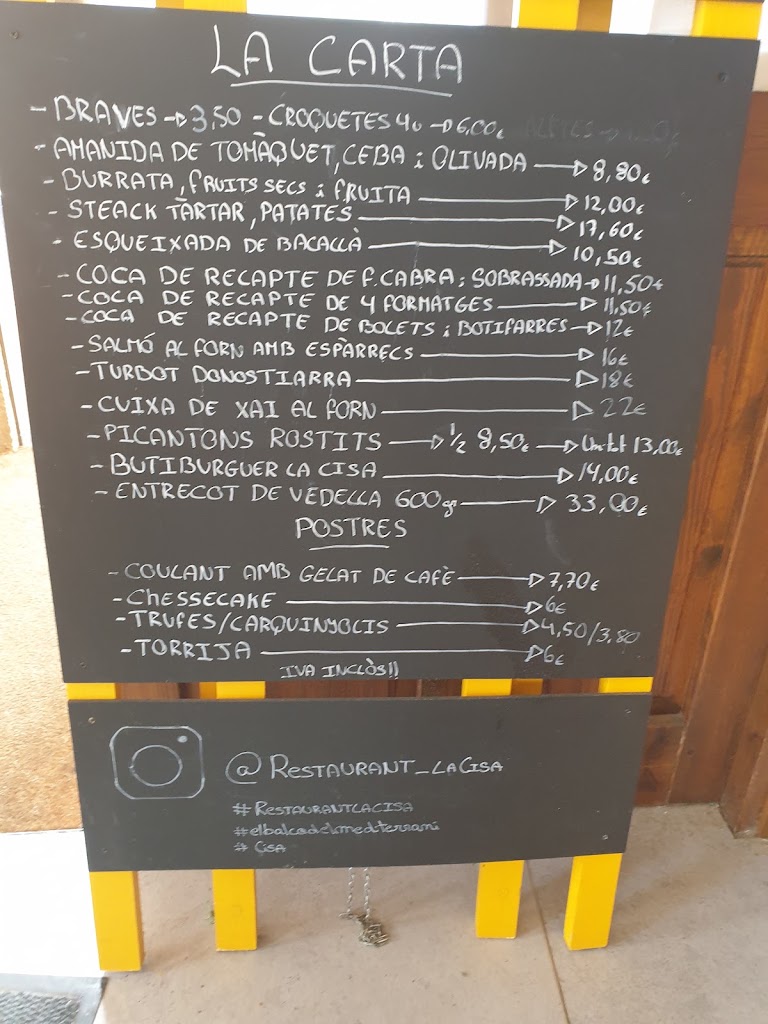 LA CARTA
- BRAVES → 3,50 - CROQUETES 4u → 6,00€
- AMANIDA DE TOMÀQUET, CEBA i OLIVADA → 8,80€
- BURRATA, FRUITS SECS i FRUITA → 12,00€
- STEACK TÀRTAR, PATATES → 17,60€
- ESQUEIXADA DE BACALLÀ → 10,50€
- COCA DE RECAPTE DE F. CABRA i SOBRASSADA → 11,50€
- COCA DE RECAPTE DE 4 FORMATGES → 11,50€
- COCA DE RECAPTE DE BOLETS i BOTIFARRES → 12€
- SALMÓ AL FORN AMB ESPÀRRECS → 16€
- TURBOT DONOSTIARRA → 18€
- CUIXA DE XAI AL FORN → 22€
- PICANTONS ROSTITS → 1/2 8,50€ → Untot 13,00€
- BUTIBURGUER LA CISA → 14,00€
- ENTRECOT DE VEDELLA 600gr → 33,00€
POSTRES
- COULANT AMB GELAT DE CAFÈ → 7,70€
- CHESSECAKE → 6€
- TRUFES/CARQUINYOLIS → 4,50/3,80
- TORRIJA → 6€
IVA INCLÒS!!
@RESTAURANT_LACISA
#RESTAURANTLACISA
#elbalcodelmediterrani
#CISA